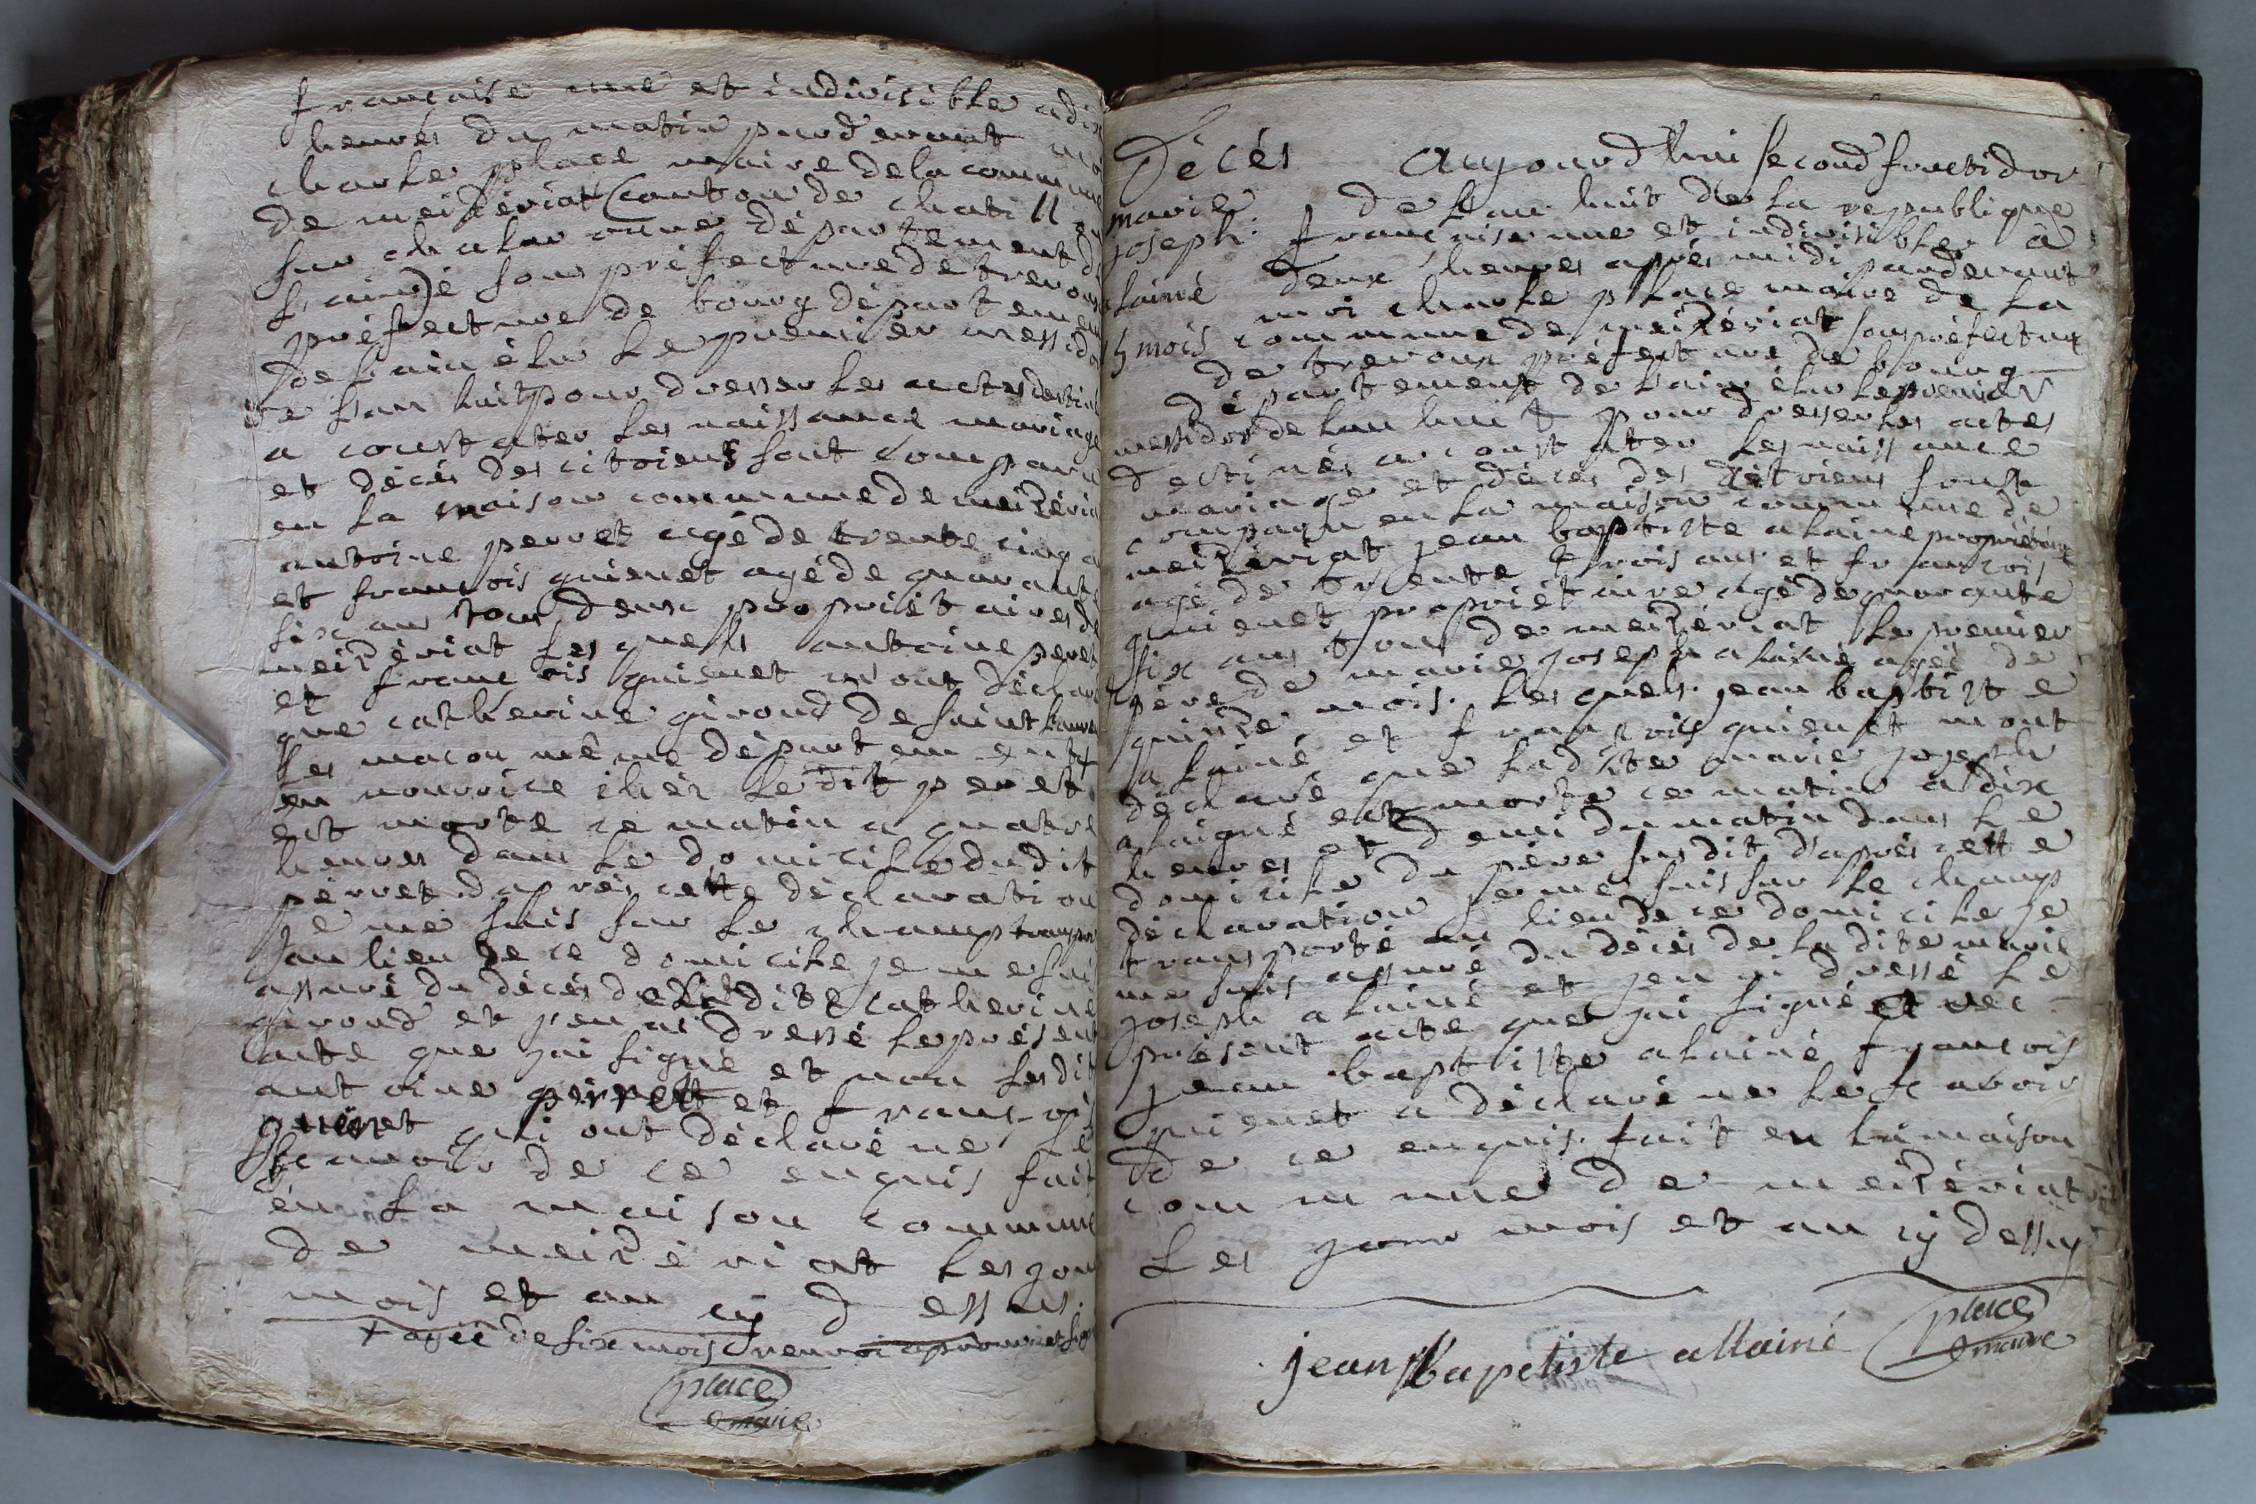 française une et indivisible a dix
heures du matin pardevant moi
charle place maire de la commune
de meizériat (canton de chatillon
sur chalaronne département de
l'ain) é sous préfecture de trevoux
préfecture de bourg département
de l'ain élu le premier messidor
de l'an huit pour dresser les actes destiné
a constater les naissance mariage
et décés des citoiens sont comparu
en la maison commune de meizéria
antoine perret agé de trente cinq a
et francois guienet agé de quarante
six an tous deux propriétaires de
meizériat les quels antoine peret
et francois guienet m'ont déclaré
que catherine giroud de saint laure
les macon même département +
en nourrice chéz le dit peret
est morte ce matin a quatre
heures dans le domicile dudit
pérret d'aprés cette déclaration
je me suis sur le champ transpor
au lieu de ce domicile je me suis
assuré du décés de la dite catherine
giroud et j'en ai dressé le présent
acte que j'ai signé et non lesdit
antoine pirrett et francois
guienet qui ont déclaré ne le
scavoir de ce enquis fait
én la maison commune
de meizériat les jour
mois et an cÿ dessus.
+ agée de six mois renvoi aprouvé et signé
place
maire
Décés
marie
joseph.
alainé
15 mois
Aujourd'hui second fructidor
de l'an huit de la republique
françaisse une et indivisible à
deux heures aprés midi pardevant
moi charle place maire de la
commune de meizériat souspréfecture
de trevoux préfecture de bourg
département de l'ain élu le premier
messidor de l'an huit pour dresser les actes
destinés a constater les naissance
mariage et décés des citoiens sonst
comparu en la maison commune de
meizériat jean baptiste alainé propriétaire
agé de trente trois ans et francois
guienet propriétaire agé de quarante
six ans tous de meizériat le premier
pére de marie joseph alainé agée de
quinze mois. les quels jean baptiste
alainé et francois guienet m'ont
déclaré que ladite marie joseph
alaigné est morte ce matin a dix
heures et demi du matin dans le
domicile du pére susdit d'aprés cette
déclaration je me suis sur le champ
transporté au lieu de ce domicile je
me suis assuré du décés de la dite marie
joseph alainé et j'en ai dressé le
présent acte que j'ai signé avec
jean baptiste alainé francois
guienet a déclaré ne le scavoir
de ce enquis. fait en la maison
commune de meizériat
les jour mois et an cÿ dessu
jean Bapetiste allainé
place
maire